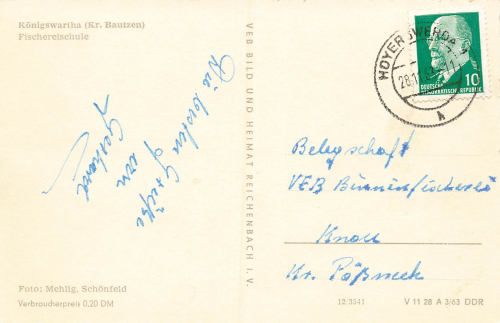 Königswartha (Kr. Bautzen)
Fischereischule
Die besten Grüße
von
VEB BILD UND HEIMAT REICHENBACH I. V.
HOYERSWERDA
DEUTSCHE
DEMOKRATISCHE REPUBLIK
10
Belegschaft
VEB Binnenfischerei
Knau
Kr. Pößneck
Foto: Mehlig, Schönfeld
Verbraucherpreis 0,20 DM
12/3541
V 11 28 A 3/63 DDR